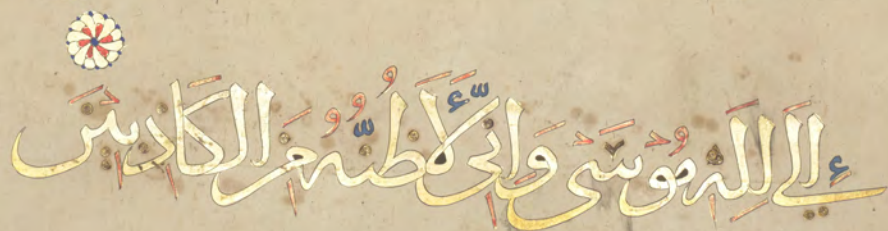 إِلَى إِلَهِ مُوسَى وَإِنِّى لَأَظُنُّهُ مِنَ الْكَاذِبِينَ